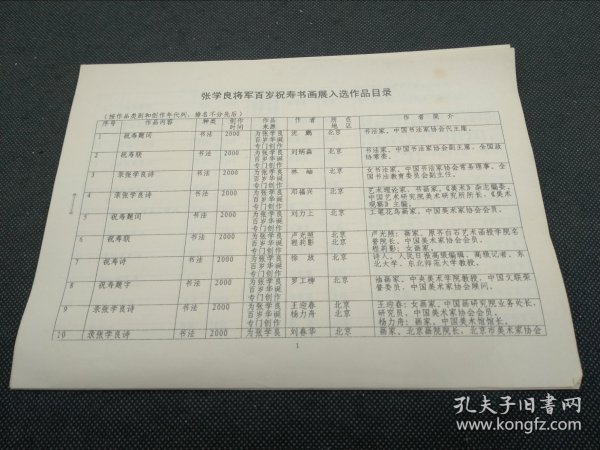 张学良将军百岁祝寿书画展入选作品目录
(按作品类别和创作年代列，排名不分先后)
序号 作品内容 种类 创作时间 作品来源 作者 所在地区 作者简介
1 祝寿题词 书法 2000 为张学良百岁华诞专门创作 沈鹏 北京 书法家，中国书法家协会代主席。
2 祝寿联 书法 2000 为张学良百岁华诞专门创作 刘炳森 北京 书法家，中国书法家协会副主席，全国政协常委。
3 录张学良诗 书法 2000 为张学良百岁华诞专门创作 林岫 北京 女书法家，中国书法家协会常务理事，全国书法教育委员会副主任。
4 录张学良诗 书法 2000 为张学良百岁华诞专门创作 邓福星 北京 艺术理论家，书画家，《美术》杂志编委，中国艺术研究院美术研究所所长，《美术观察》主编。
5 祝寿题词 书法 2000 为张学良百岁华诞专门创作 刘力上 北京 工笔花鸟画家，中国美术家协会会员。
6 祝寿联 书法 2000 为张学良百岁华诞专门创作 卢光照 程莉影 北京 北京 卢光照：画家，原齐白石艺术函授学院名誉院长，中国美术家协会会员。
程莉影：女画家。
7 祝寿诗 书法 2000 为张学良百岁华诞专门创作 徐放 北京 诗人，人民日报高级编辑，高级记者，东北大学、东北师范大学教授。
8 祝寿题字 书法 2000 为张学良百岁华诞专门创作 罗工柳 北京 油画家，中央美术学院教授，中国文联荣誉委员，中国美术家协会顾问。
9 录张学良诗 书法 2000 为张学良百岁华诞专门创作 王迎春 杨力舟 北京 北京 王迎春：女画家，中国画研究院业务处长，研究员，中国美术家协会会员。
杨力舟：画家，中国美术馆馆长。
10 录张学良诗 书法 2000 为张学良 刘春华 北京 画家，北京画院院长，北京市美术家协会
1
孔夫子旧书网
www.kongfz.com